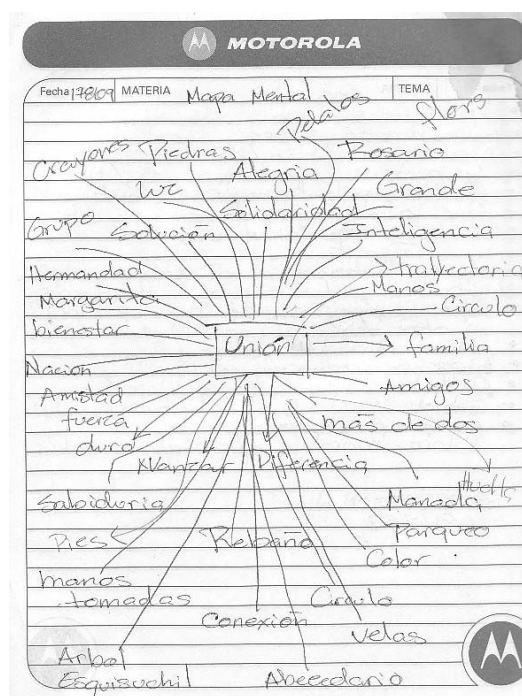 MOTOROLA
Fecha 17/8/09 MATERIA Mapa Mental TEMA
Petalos flors
Crayones Piedras Rosario
Alegria
Grande
Solidaridad
Grupo Solución Inteligencia
Hermandad trallectoria
Manos
Margarita Circulo
bienestar
Unión familia
Nación
Amistad Amigos
fuerza más de dos
duro
Avanzar Diferencia
Sabiduria Manada Huella
Pies Rebaño Parqueo
Color
manos
tomadas Circulo
Conexión Velas
Arbol
Esquisuchil Abecedario